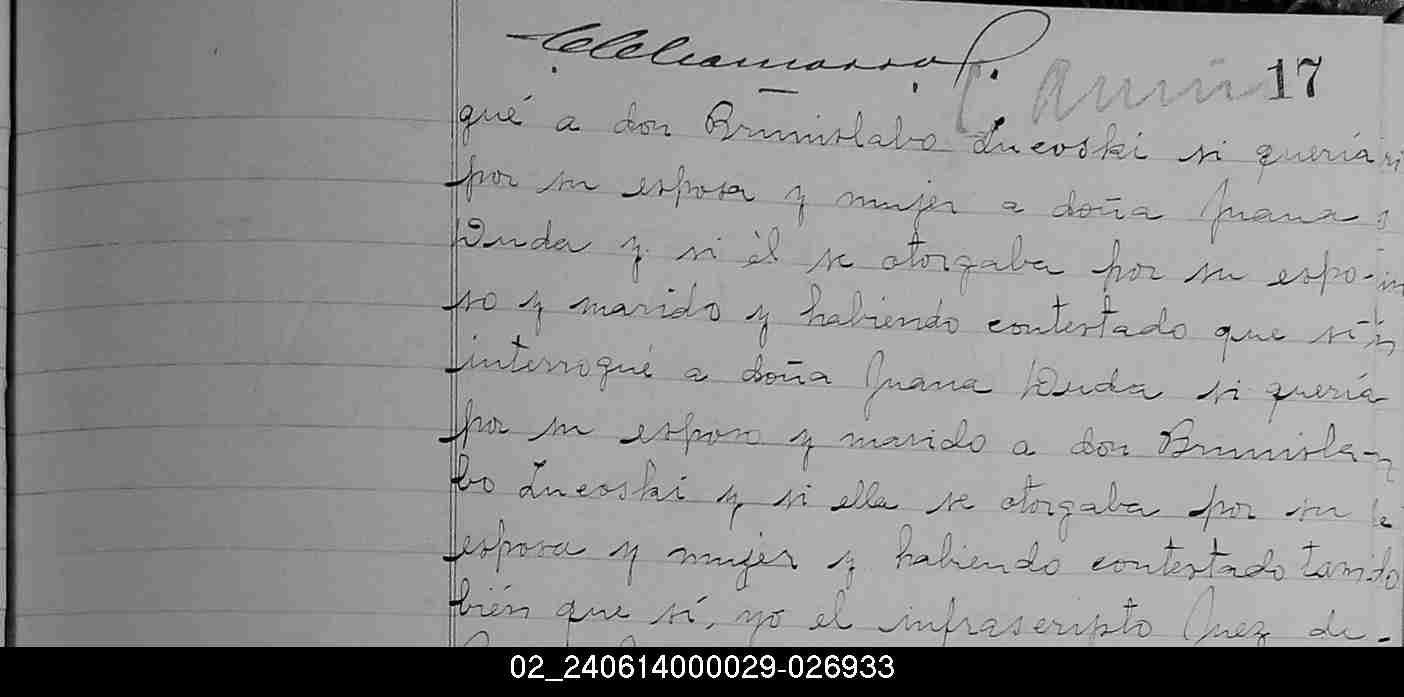 17
qué a don Brunislabo Lucoski si quería
por su esposa y mujer a doña Juana
Duda y si él se otorgaba por su espo-
so y marido y habiendo contestado que sí
interrogué a doña Juana Duda si quería
por su esposo y marido a don Brunisla-
bo Lucoski y si ella se otorgaba por su
esposa y mujer y habiendo contestado tam
bién que sí, yo el infrascripto Juez de-
02_240614000029-026933